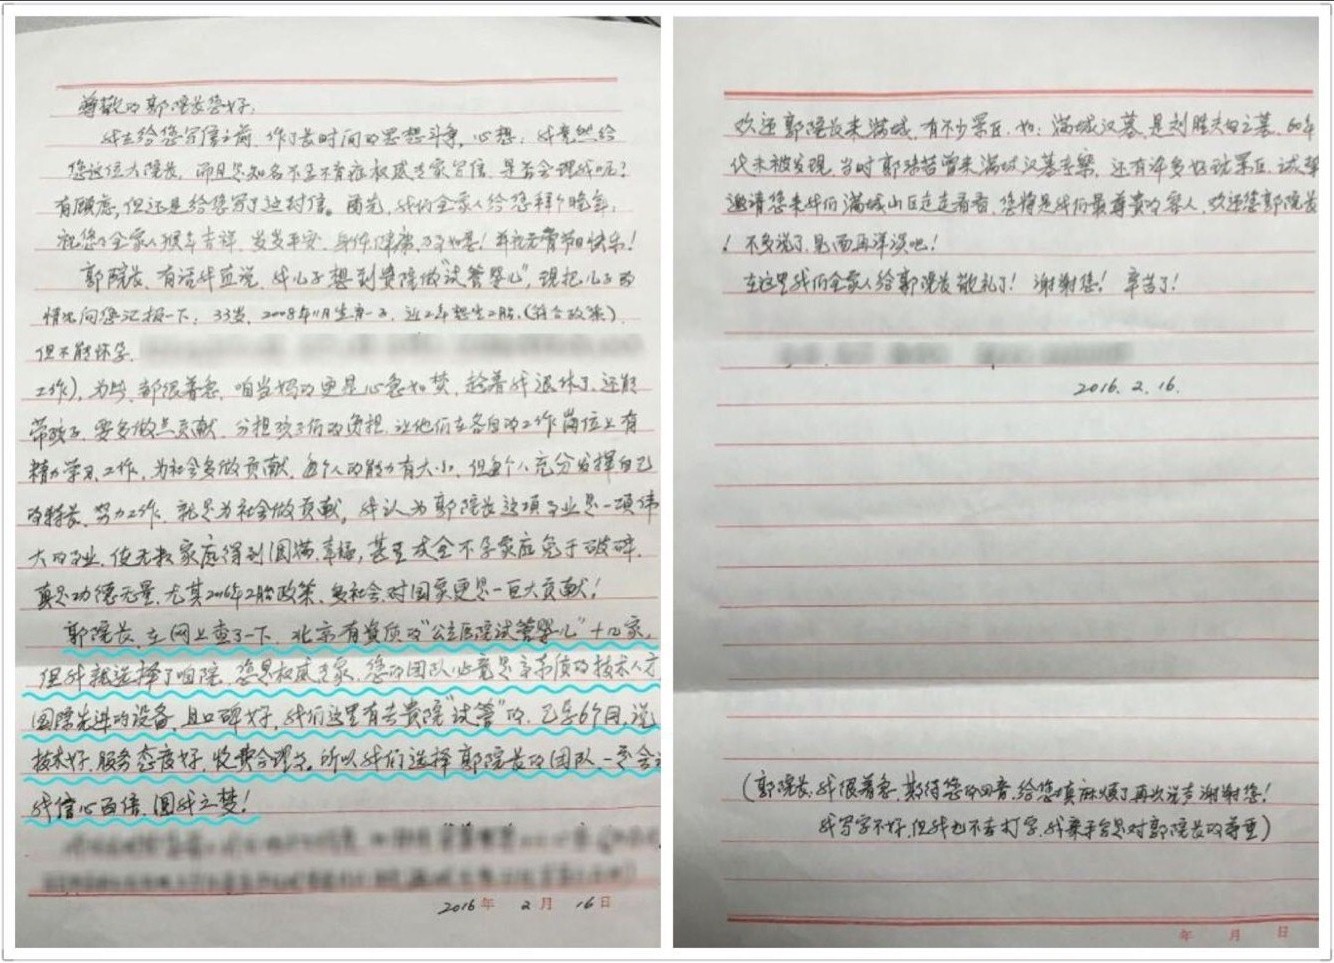 尊敬的郭院长您好:
我在给您写信之前,作了长时间的思想斗争,心想:我竟然给
您这位大院长,而且是知名不孕不育症权威专家写信,是否会理我呢?
有顾虑,但还是给您写了这封信。首先,我们全家人给您拜个晚年,
祝您全家人猴年吉祥,岁岁平安,身体健康,万事如意!并祝元宵节日快乐!
郭院长,有话我直说,我儿子想到贵院做“试管婴儿”,现把儿子的
情况向您汇报一下:33岁,2008年11月生育一子,近2年想生2胎,(符合政策)
但不能怀孕,
工作),为此,都很着急,咱当妈的更是心急如焚,趁着我退休了,还能
带孩子,要多做点贡献,分担孩子们的负担,让他们在各自的工作岗位上有
精力学习、工作,为社会多做贡献,每个人的能力有大小,但每个人充分发挥自己
的特长,努力工作,就是为社会做贡献,我认为郭院长这项事业是一项伟
大的事业,使无数家庭得到圆满、幸福,甚至成全不孕家庭免于破碎,
真是功德无量,尤其2016年2胎政策,对社会、对国家更是一巨大贡献!
郭院长,在网上查了一下,北京有资质的“公立医院试管婴儿”十几家,
但我就选择了咱院,您是权威专家,您的团队必竟是高素质的技术人才
国际先进的设备,且口碑好,我们这里有去贵院“试管”的,已孕6个月,说
技术好,服务态度好,收费合理等,所以我们选择郭院长的团队,一定会
我信心百倍,圆我之梦!
2016年 2月 16日
欢迎郭院长来满城,有不少景区,如:满城汉墓,是刘胜夫妇之墓,60年
代末被发现,当时郭沫若曾来满城汉墓考察,还有许多好玩景区,诚挚
邀请您来我们满城山区走走看看,您将是我们最尊贵的客人,欢迎您郭院长
!不多说了,见面再详谈吧!
在这里我们全家人给郭院长敬礼了!谢谢您!辛苦了!
2016.2.16.
(郭院长,我很着急,期待您的回音,给您添麻烦了再次说声谢谢您!
我写字不好,但我也不去打字,我亲手写是对郭院长的尊重)
年 月 日